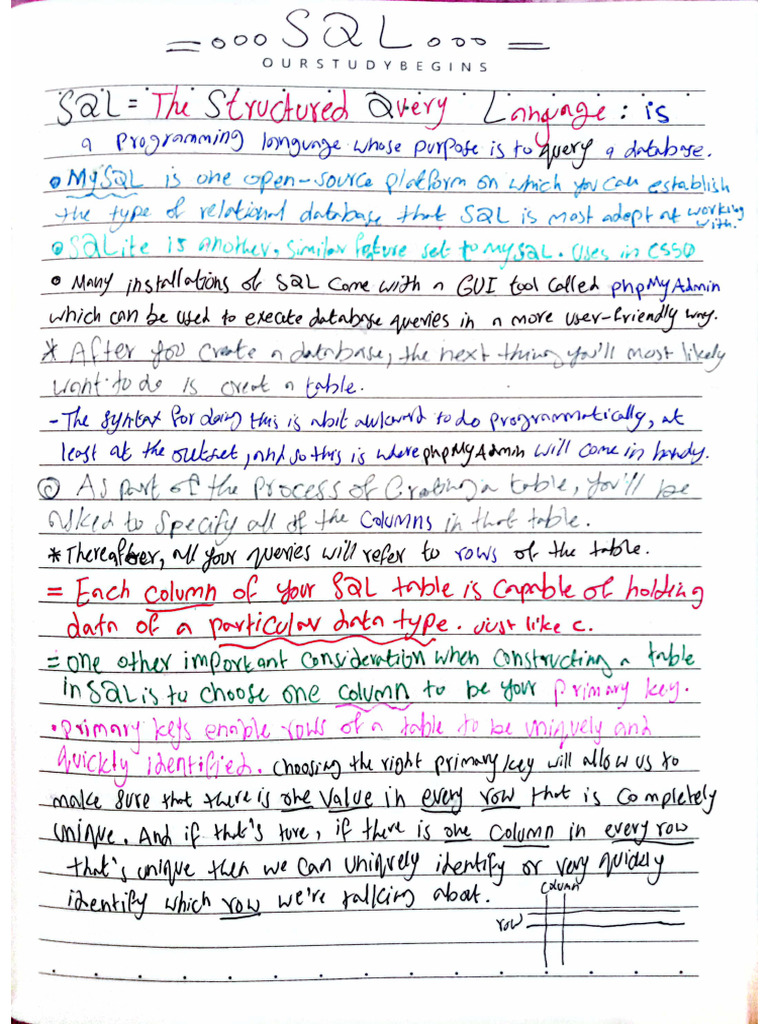 = ooo SQL ooo =
OURSTUDYBEGINS
SQL = The Structured Query Language : is
a programming language whose purpose is to query a database.
• MySQL is one open-source platform on which you can establish
the type of relational database that SQL is most adept at working
with.
• SQLite is another, similar feature set to MySQL. Uses in CS50
• Many installations of SQL come with a GUI tool called phpMyAdmin
which can be used to execate database queries in a more user-friendly way.
* After you create a database, the next thing you'll most likely
want to do is creat a table.
- The syntax for doing this is abit awkward to do programmatically, at
least at the outset, and so this is where phpMyAdmin will come in handy.
◎ As part of the process of Crating a table, you'll be
asked to specify all of the columns in that table.
* Thereafter, all your queries will refer to rows of the table.
= Each column of your SQL table is capable of holding
data of a particular data type. Just like c.
= one other important consideration when constructing a table
in SQL is to choose one column to be your primary key.
• primary keys enable rows of a table to be uniquely and
quickly identified. choosing the right primary key will allow us to
make sure that there is one value in every row that is completely
unique. And if that's ture, if there is one column in every row
that's unique then we can uniquely identify or very quickly
identify which row we're talking about.
column
row